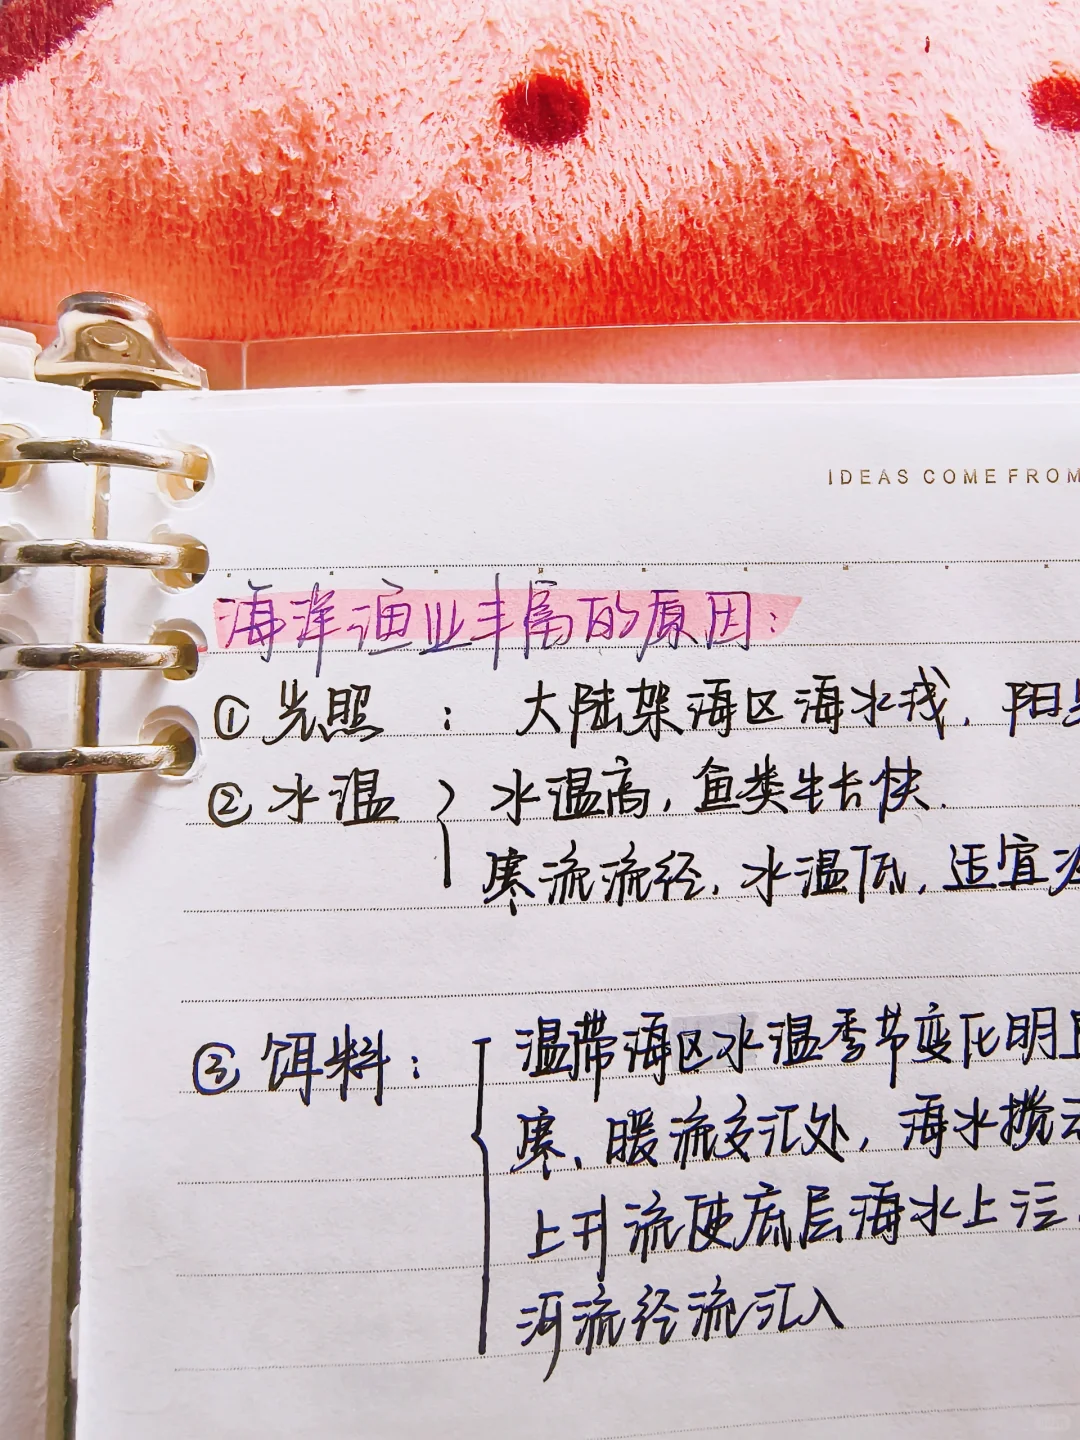 IDEAS COME FROM
海洋渔业丰富的原因:
① 光照 : 大陆架海区海水浅, 阳
② 水温 { 水温高, 鱼类生长快.
寒流流经, 水温低, 适宜
③ 饵料: { 温带海区水温季节变化明
寒、暖流交汇处, 海水搅
上升流使底层海水上泛,
河流径流汇入